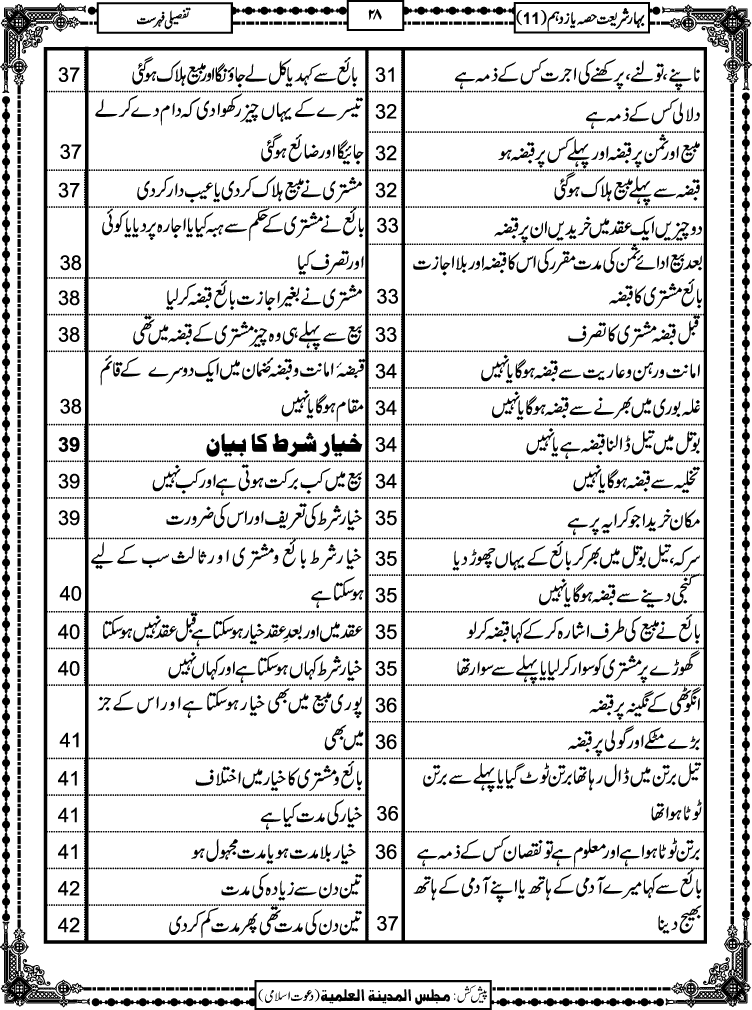 بہار شریعت حصہ یازدہم (11)
۲۸
تفصیلی فہرست
ناپنے، تولنے، پرکھنے کی اجرت کس کے ذمہ ہے 31
دلالی کس کے ذمہ ہے 32
مبیع اور ثمن پر قبضہ اور پہلے کس پر قبضہ ہو 32
قبضہ سے پہلے مبیع ہلاک ہوگئی 32
دو چیزیں ایک عقد میں خریدیں ان پر قبضہ 33
بعد بیع ادائے ثمن کی مدت مقرر کی اس کا قبضہ اور بلا اجازت
بائع مشتری کا قبضہ 33
قبل قبضہ مشتری کا تصرف 33
امانت و رہن و عاریت سے قبضہ ہوگا یا نہیں 34
غلہ بوری میں بھرنے سے قبضہ ہوگا یا نہیں 34
بوتل میں تیل ڈالنا قبضہ ہے یا نہیں 34
تخلیہ سے قبضہ ہوگا یا نہیں 34
مکان خریدا جو کرایہ پر ہے 35
سرکہ، تیل بوتل میں بھر کر بائع کے یہاں چھوڑ دیا 35
کنجی دینے سے قبضہ ہوگا یا نہیں 35
بائع نے مبیع کی طرف اشارہ کرکے کہا قبضہ کرلو 35
گھوڑے پر مشتری کو سوار کرلیا یا پہلے سے سوار تھا 35
انگوٹھی کے نگینہ پر قبضہ 36
بڑے مٹکے اور گولی پر قبضہ 36
تیل برتن میں ڈال رہا تھا برتن ٹوٹ گیا یا پہلے سے برتن
ٹوٹا ہوا تھا 36
برتن ٹوٹا ہوا ہے اور معلوم ہے تو نقصان کس کے ذمہ ہے 36
بائع سے کہا میرے آدمی کے ہاتھ یا اپنے آدمی کے ہاتھ
بھیج دینا 37
بائع سے کہدیا کل لے جاؤنگا اور مبیع ہلاک ہوگئی 37
تیسرے کے یہاں چیز رکھوا دی کہ دام دے کر لے
جائیگا اور ضائع ہوگئی 37
مشتری نے مبیع ہلاک کر دی یا عیب دار کر دی 37
بائع نے مشتری کے حکم سے ہبہ کیا یا اجارہ پر دیا یا کوئی
اور تصرف کیا 38
مشتری نے بغیر اجازت بائع قبضہ کرلیا 38
بیع سے پہلے ہی وہ چیز مشتری کے قبضہ میں تھی 38
قبضۂ امانت و قبضۂ ضمان میں ایک دوسرے کے قائم
مقام ہوگا یا نہیں 38
خیار شرط کا بیان 39
بیع میں کب برکت ہوتی ہے اور کب نہیں 39
خیار شرط کی تعریف اور اس کی ضرورت 39
خیار شرط بائع و مشتری اور ثالث سب کے لیے
ہوسکتا ہے 40
عقد میں اور بعدِ عقد خیار ہوسکتا ہے قبل عقد نہیں ہوسکتا 40
خیار شرط کہاں ہوسکتا ہے اور کہاں نہیں 40
پوری مبیع میں بھی خیار ہوسکتا ہے اور اس کے جز
میں بھی 41
بائع و مشتری کا خیار میں اختلاف 41
خیار کی مدت کیا ہے 41
خیار بلا مدت ہو یا مدت مجہول ہو 41
تین دن سے زیادہ کی مدت 42
تین دن کی مدت تھی پھر مدت کم کردی 42
پیش کش: مجلس المدینۃ العلمیۃ (دعوت اسلامی)